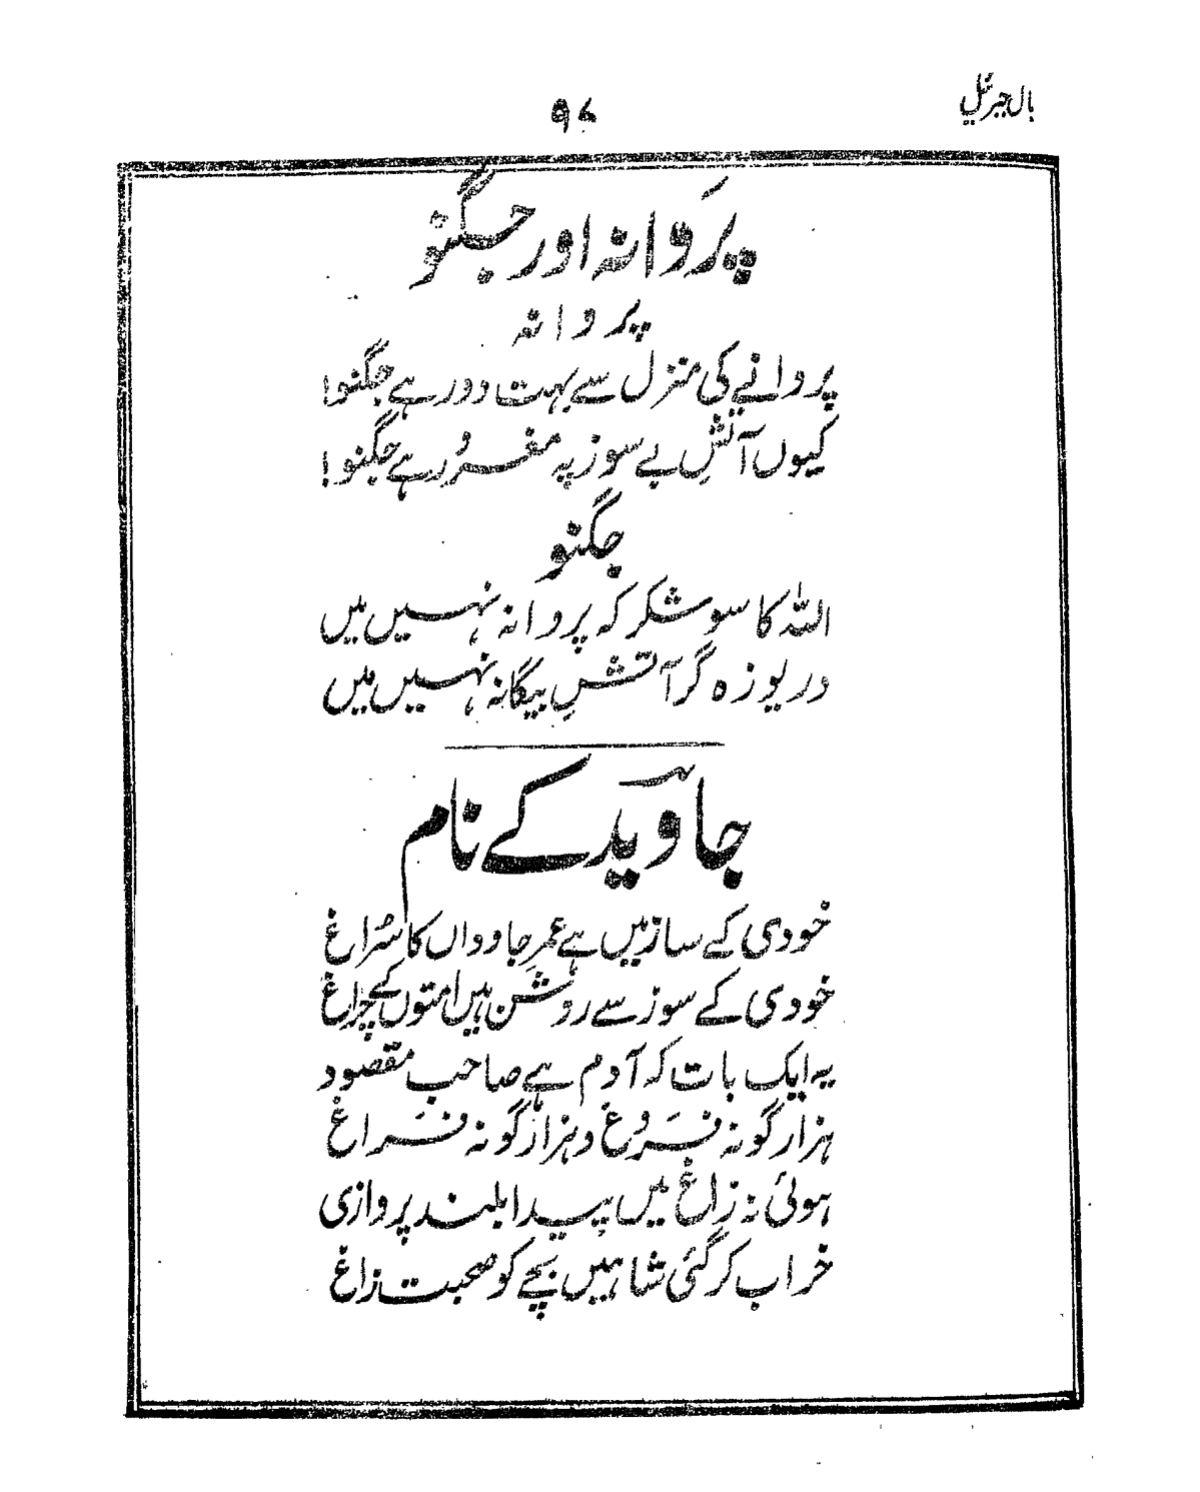 بال جبریل
۹۷
پروانہ اور جگنو
پروانہ
پروانے کی منزل سے بہت دور ہے جگنو!
کیوں آتشِ بے سوز پہ مغرُور ہے جگنو!
جگنو
اللہ کا سو شکر کہ پروانہ نہیں میں
دریوزہ گر آتشِ بیگانہ نہیں میں
جاوید کے نام
خودی کے ساز میں ہے عمرِ جاوداں کا سُراغ
خودی کے سوز سے روشن ہیں امتوں کے چراغ
یہ ایک بات کہ آدم ہے صاحب مقصود
ہزار گونہ فَروُغ و ہزار گونہ فَراغ
ہوئی نہ زاغ میں پیدا بلند پروازی
خراب کر گئی شاہیں بچے کو صحبت زاغ